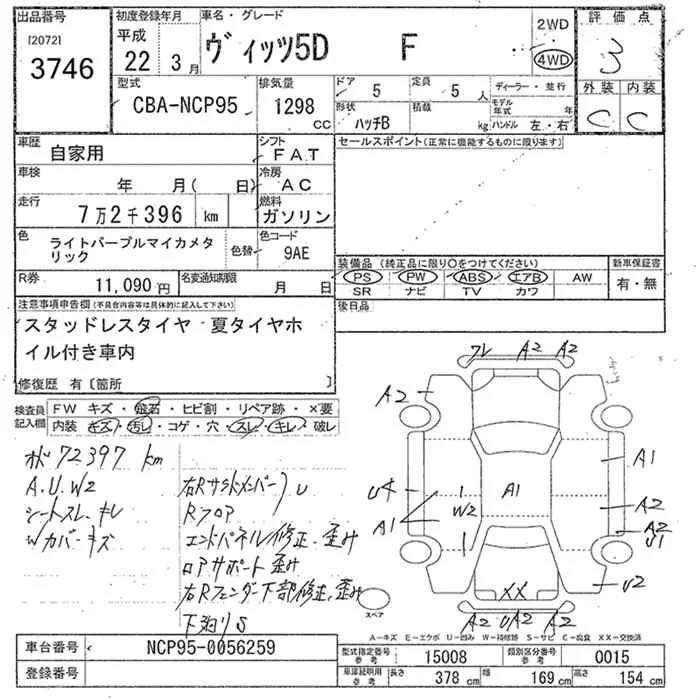 出品番号
[2072]
3746
初度登録年月
平成
22年3月
車名・グレード
ヴィッツ5D F
2WD
4WD
評価点
3
外装 内装
C C
型式
CBA-NCP95
排気量
1298
CC
ドア
5
定員
5人
ディーラー・並行
形状
ハッチB
積載
kg
モデル年式 年
ハンドル 左・右
車歴
自家用
シフト
FAT
セールスポイント(正常に機能するものに限ります)
車検
年 月( 日)
冷房
AC
走行
7万2千396 km
燃料
ガソリン
色
ライトパープルマイカメタリック
色替
色コード
9AE
装備品 (純正品に限り〇をつけてください)
PS PW ABS エアB AW
SR ナビ TV カワ
新車保証書
有・無
R券
11,090円
名変通知期限
月 日
後日品
注意事項申告欄(不具合内容等は具体的に記入して下さい)
スタッドレスタイヤ 夏タイヤホ
イル付き車内
修復歴 有〔箇所 〕
検査員記入欄
FW キズ・飛石・ヒビ割・リペア跡・×要
内装 キズ・汚レ・コゲ・穴・スレ・キレ・破レ
72397 km
A.U.W2
シートスレ.キレ
Wカバーキズ
右Rサイドメンバー U
Rフロア
エンドパネル修正.歪み
ロアサポート歪み
右Rフェンダー下部修正.歪み
下廻りS
フレ A2 A2
A2
A1
U4
A1
W2
A1
A2
A2
U1
XX
U2
A2 UA2 A2
スペア
A-キズ E-エクボ U-凹み W-補修跡 S-サビ C-腐食 XX-交換済
車台番号
NCP95-0056259
登録番号
型式指定番号
参考
15008
類別区分番号
参考
0015
車庫証明用
参考
長さ
378 cm
幅
169 cm
高さ
154 cm